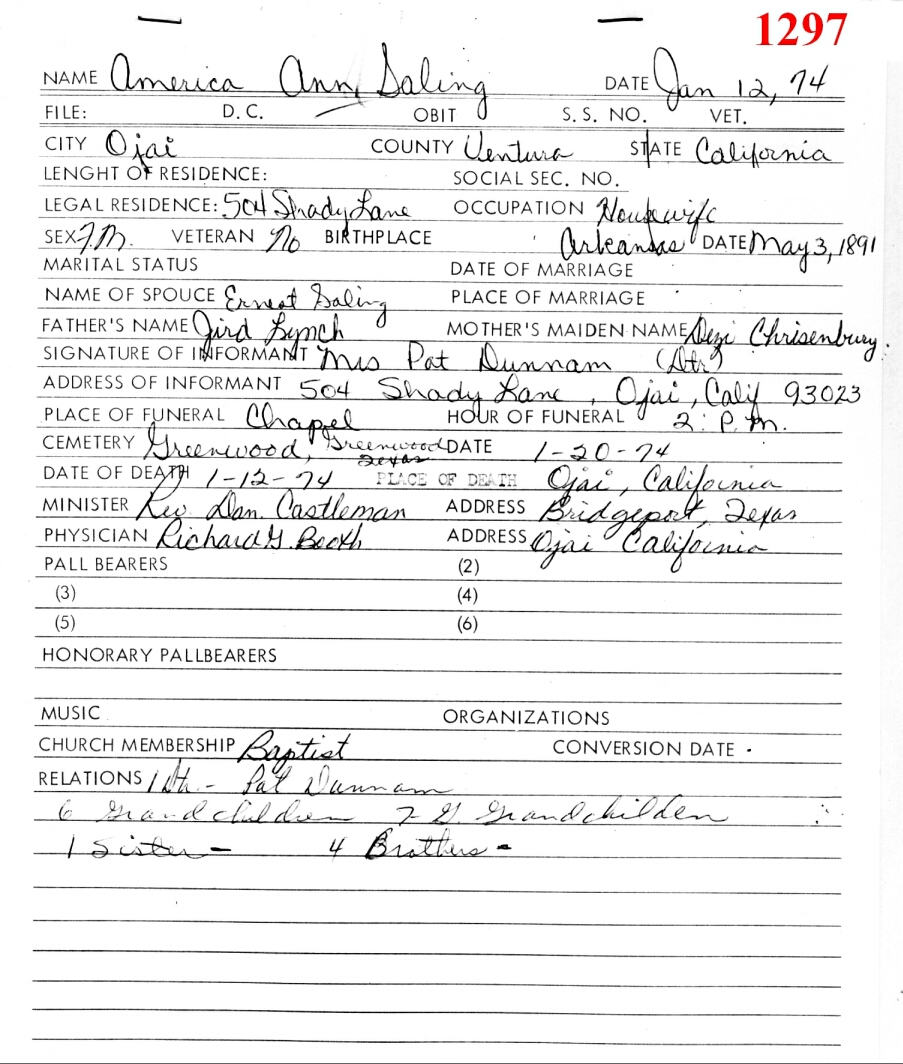 1297
NAME America Ann Saling DATE Jan 12, 74
FILE: D. C. OBIT S. S. NO. VET.
CITY Ojai COUNTY Ventura STATE California
LENGHT OF RESIDENCE: SOCIAL SEC. NO.
LEGAL RESIDENCE: 504 Shady Lane OCCUPATION Housewife
SEX F.M. VETERAN No BIRTHPLACE Arkansas DATE May 3, 1891
MARITAL STATUS DATE OF MARRIAGE
NAME OF SPOUCE Ernest Saling PLACE OF MARRIAGE
FATHER'S NAME Jird Lynch MOTHER'S MAIDEN NAME Dezi Chrisenbury.
SIGNATURE OF INFORMANT Mrs Pat Dunnam (Dtr)
ADDRESS OF INFORMANT 504 Shady Lane, Ojai, Calif 93023
PLACE OF FUNERAL Chapel HOUR OF FUNERAL 2: P.M.
CEMETERY Greenwood, Greenwood Texas DATE 1-20-74
DATE OF DEATH 1-12-74 PLACE OF DEATH Ojai, California
MINISTER Rev Dan. Castleman ADDRESS Bridgeport, Texas
PHYSICIAN Richard G. Booth ADDRESS Ojai California
PALL BEARERS (2)
(3) (4)
(5) (6)
HONORARY PALLBEARERS
MUSIC ORGANIZATIONS
CHURCH MEMBERSHIP Baptist CONVERSION DATE
RELATIONS 1 Dtr - Pat Dunnam
6 Grandchildren 7 G Grandchilden
1 Sister - 4 Brothers -